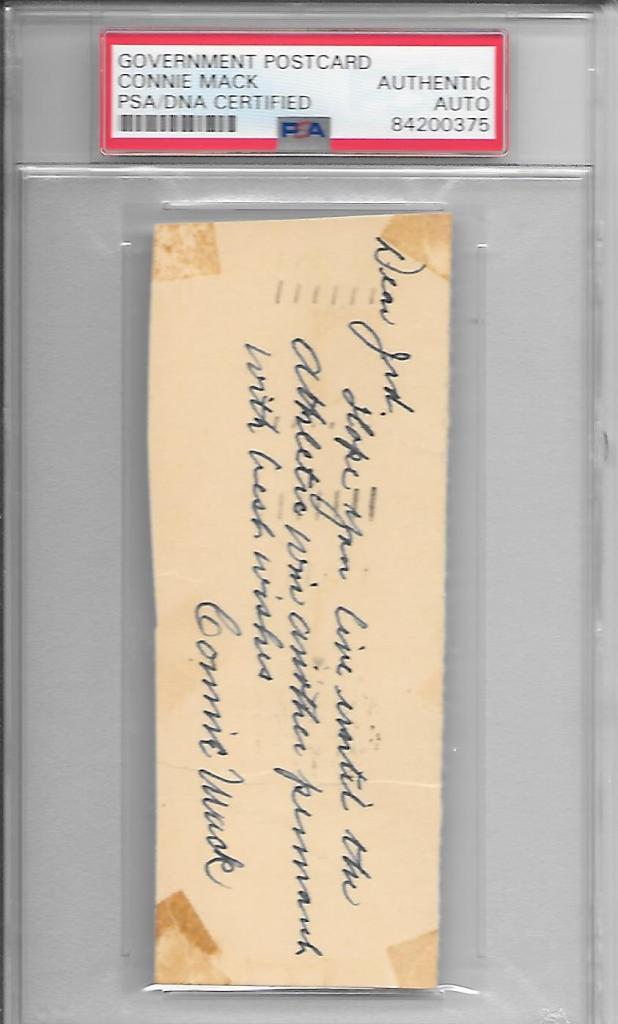 GOVERNMENT POSTCARD
CONNIE MACK AUTHENTIC
PSA/DNA CERTIFIED AUTO
PSA 84200375
Dear Jud.
Hope you live until the
Athletic win another pennant
with best wishes
Connie Mack